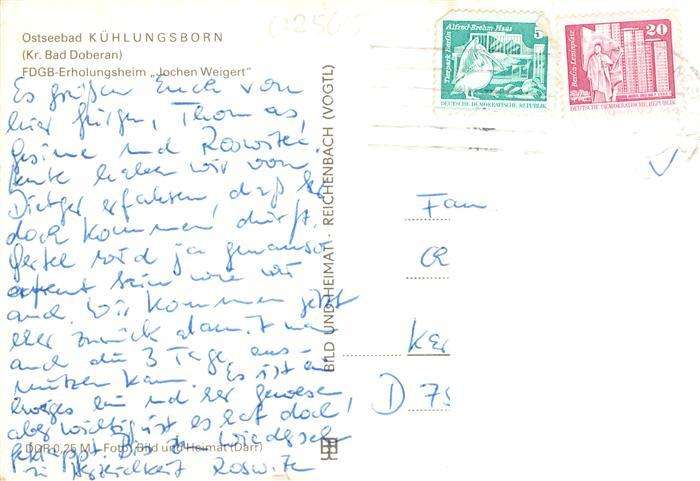 Ostseebad KÜHLUNGSBORN
(Kr. Bad Doberan)
FDGB-Erholungsheim „Jochen Weigert"
Es grüßen Euch von
hier Jürgen, Thomas,
Gesine und Roswitha.
Heute haben wir von
Dietger erfahren, daß Ihr
doch kommen dürft.
wird ja genauso
sein wie wir
auch. Wir kommen jetzt
eher zurück damit man
auch die 3 Tage aus-
nutzen kann. Es ist ein
ewiges hin und her gewesen
aber wichtig ist es hat doch
geklappt. Bis z. Wiedersehen
in Herzlichkeit Roswitha
DDR 0,25 M · Foto: Bild und Heimat (Darr)
BILD UND HEIMAT · REICHENBACH (VOGTL)
Alfred-Brehm Haus
Tierpark Berlin
5
DEUTSCHE DEMOKRATISCHE REPUBLIK
20
Berlin, Leninplatz
DEUTSCHE DEMOKRATISCHE REPUBLIK
Fam
Ker
D 75